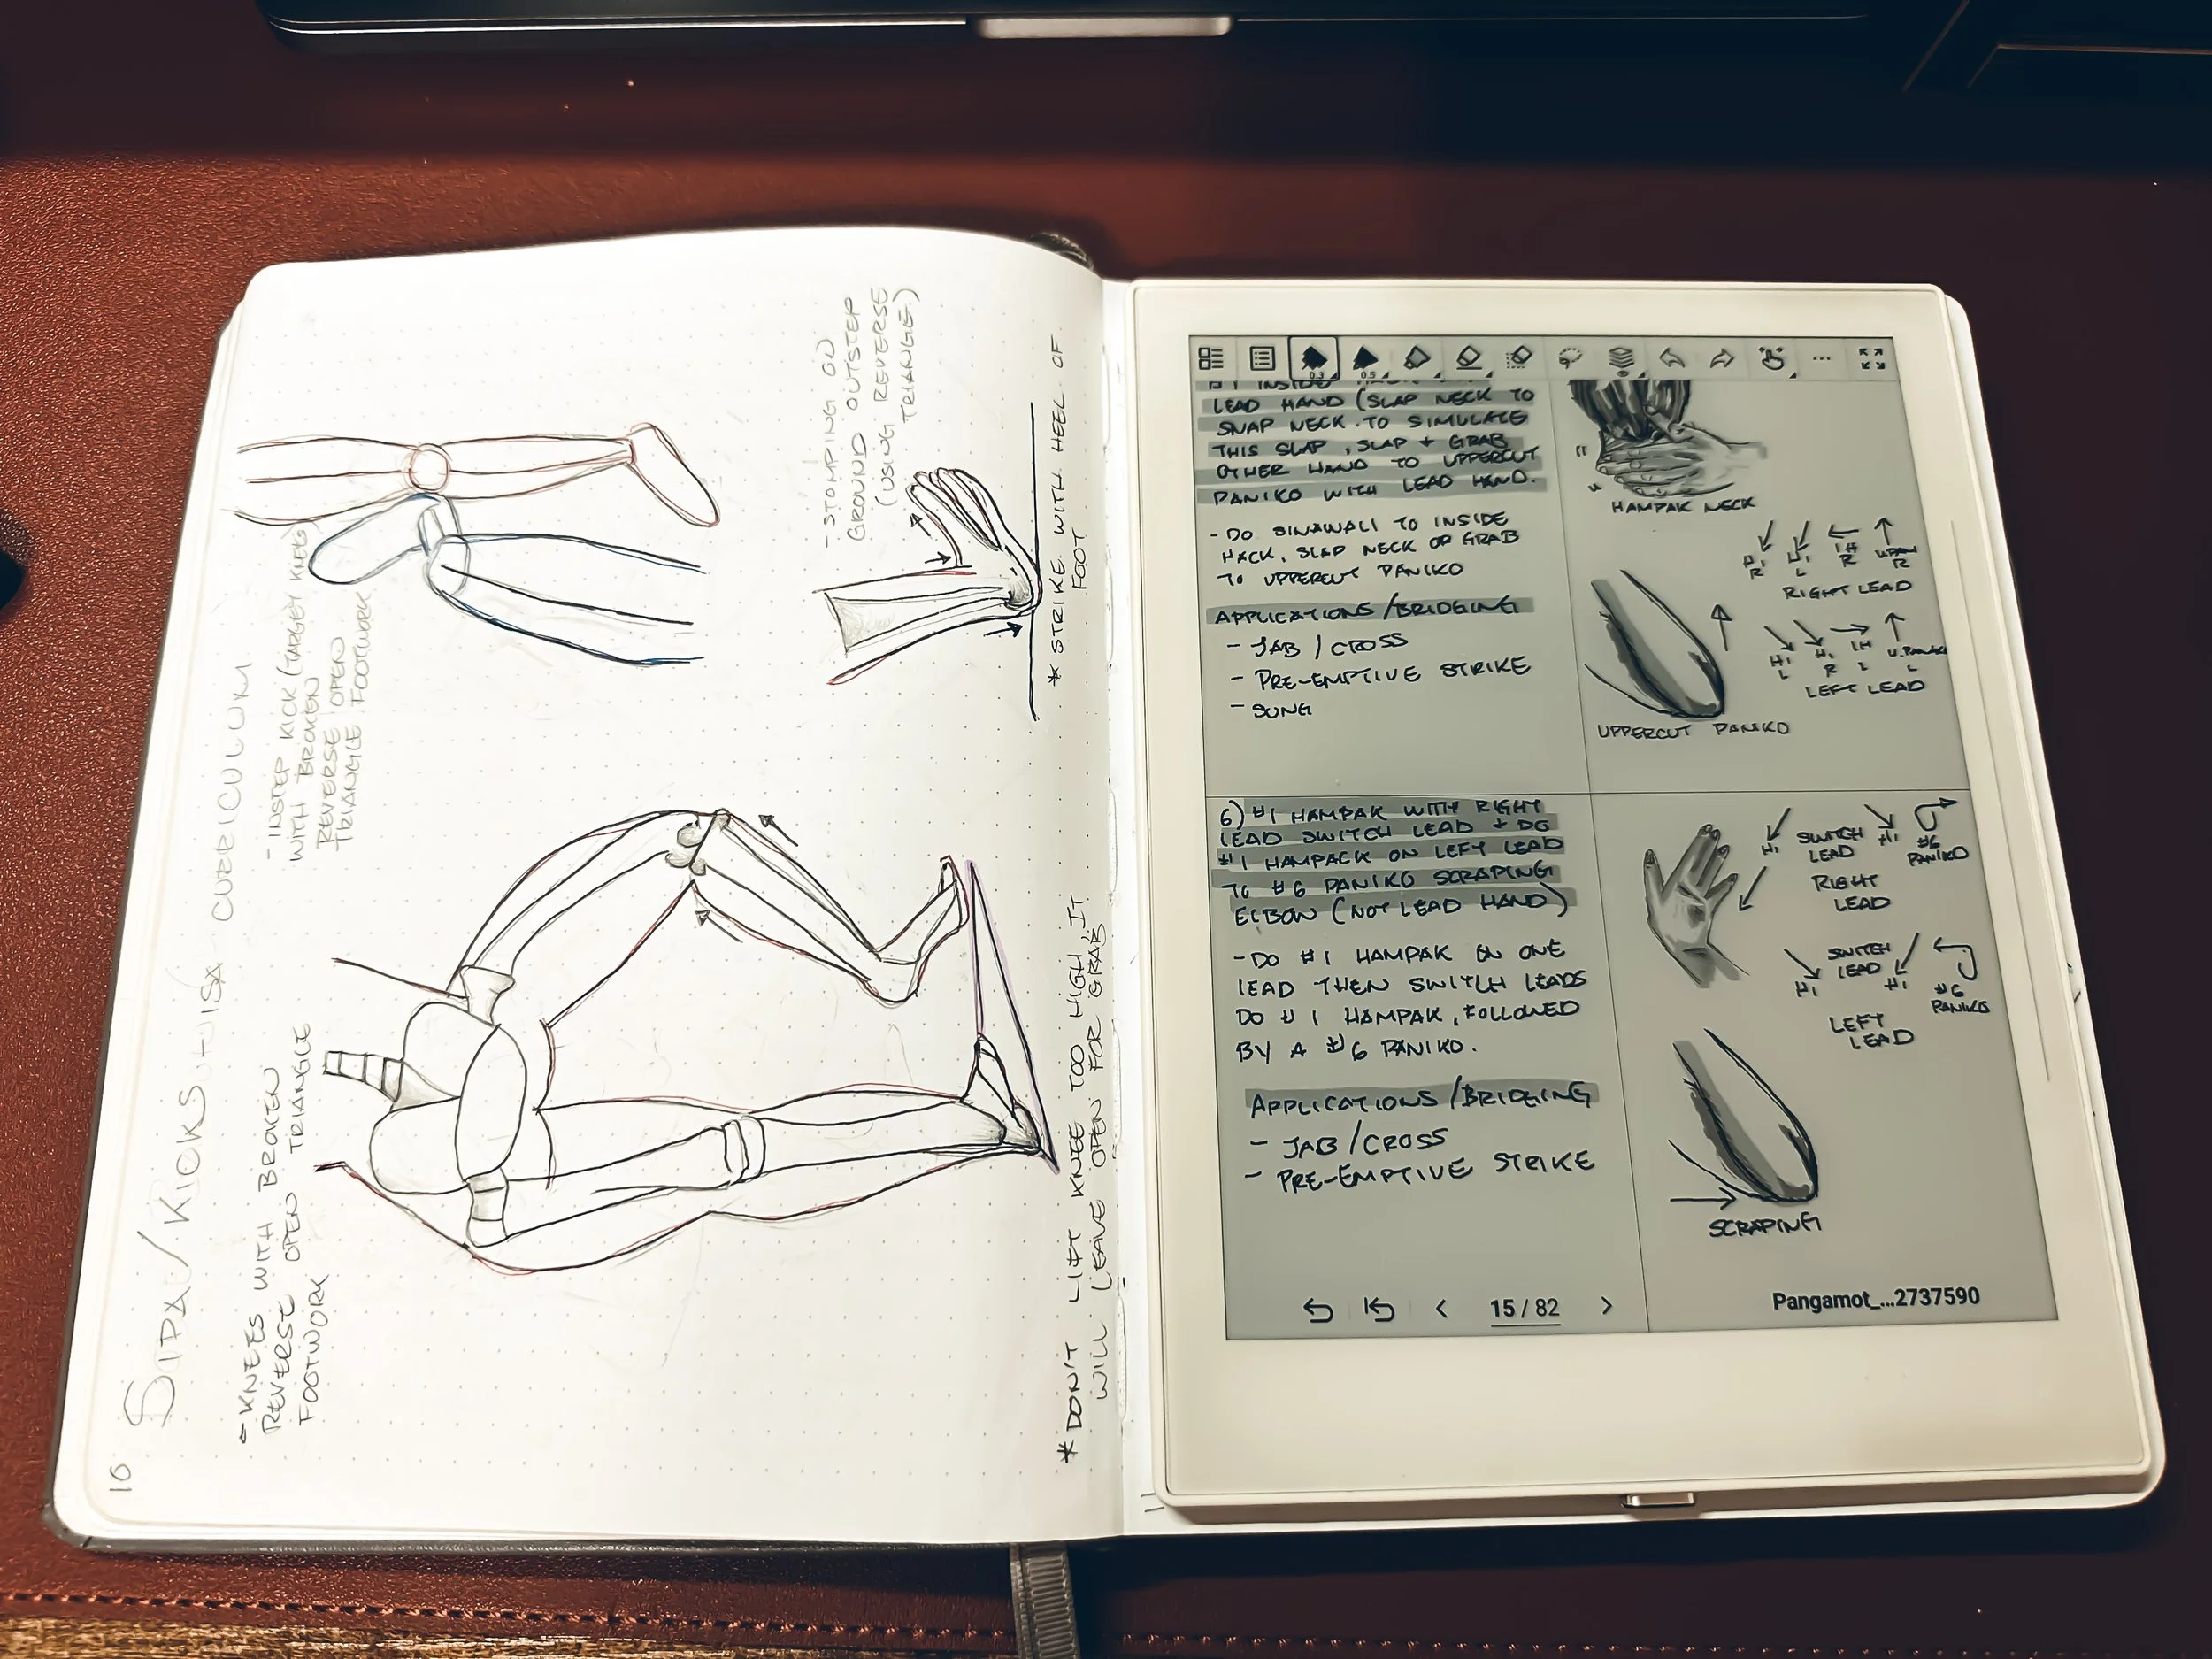 10
SIPA/KICKS CURRICULUM
- KNEES WITH BROKEN
REVERSE OPEN TRIANGLE
FOOTWORK
- INSTEP KICK (TARGET KNEES)
WITH BROKEN
REVERSE OPEN
TRIANGLE FOOTWORK
- STOMPING ON
GROUND OUTSTEP
(USING REVERSE
TRIANGE)
* STRIKE WITH HEEL OF
FOOT
* DON'T LIFT KNEE TOO HIGH, IT
WILL LEAVE OPEN FOR GRAB
0.3
0.5
BY INSIDE
LEAD HAND (SLAP NECK TO
SNAP NECK. TO SIMULATE
THIS SLAP, SLAP + GRAB
OTHER HAND TO UPPERCUT
PANIKO WITH LEAD HAND.
- DO SINAWALI TO INSIDE
HACK, SLAP NECK OR GRAB
TO UPPERCUT PANIKO
APPLICATIONS/BRIDGING
- JAB/CROSS
- PRE-EMPTIVE STRIKE
- SUNG
HAMPAK NECK
H1 H1 IH U.PAN
R L R R
RIGHT LEAD
H1 H1 IH U.PANIKO
L R L L
LEFT LEAD
UPPERCUT PANIKO
6) #1 HAMPAK WITH RIGHT
LEAD SWITCH LEAD + DO
#1 HAMPACK ON LEFT LEAD
TO #6 PANIKO SCRAPING
ELBOW (NOT LEAD HAND)
- DO #1 HAMPAK ON ONE
LEAD THEN SWITCH LEADS
DO #1 HAMPAK, FOLLOWED
BY A #6 PANIKO.
APPLICATIONS/BRIDGING
- JAB/CROSS
- PRE-EMPTIVE STRIKE
H1 SWITCH LEAD #1 #6 PANIKO
RIGHT
LEAD
H1 SWITCH LEAD #1 #6 PANIKO
LEFT
LEAD
SCRAPING
15 / 82
Pangamot_...2737590